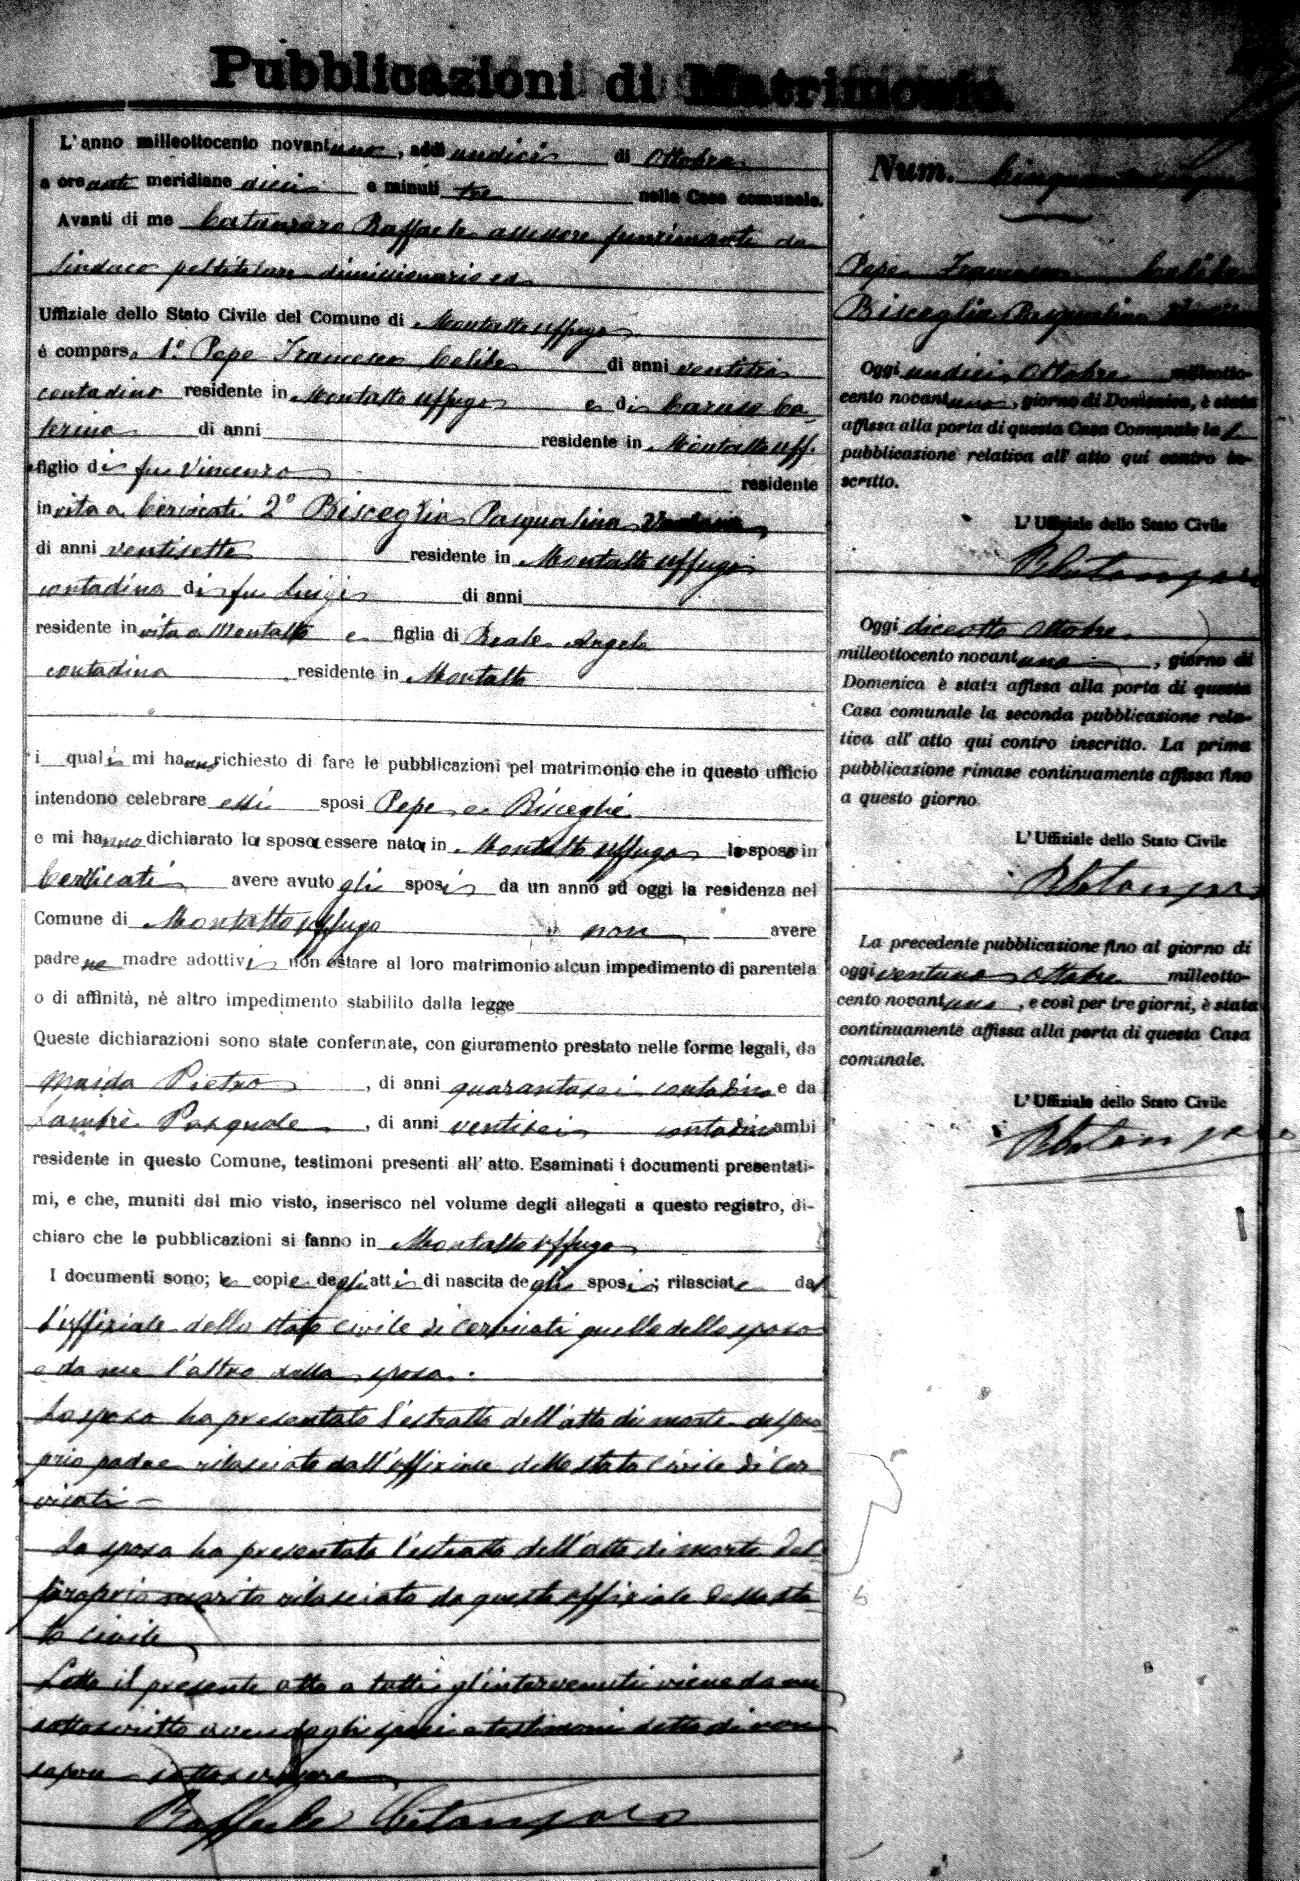 Pubblicazioni di Matrimonio.
L'anno milleottocento novantuno, addì undici di Ottobre
a ore anti meridiane dieci e minuti tre nella Casa comunale.
Avanti di me Catanzaro Raffaele assessore funzionante da
Sindaco pel titolare dimissionario ed
Uffiziale dello Stato Civile del Comune di Montalto Uffugo
è compars 1º Pepe Francesco Celibe di anni ventitrè
contadino residente in Montalto Uffugo e di Caruso Ca-
terina di anni residente in Montalto Uff.
figlio di fu Vincenzo residente
in vita a Cervicati 2º Bisceglia Pasqualina Vedova
di anni ventisette residente in Montalto Uffugo
contadina di fu Luigi di anni
residente in vita a Montalto e figlia di Reale Angela
contadina residente in Montalto
i quali mi hanno richiesto di fare le pubblicazioni pel matrimonio che in questo ufficio
intendono celebrare essi sposi Pepe e Bisceglie
e mi hanno dichiarato la sposa essere nata in Montalto Uffugo lo sposo in
Cervicati avere avuto gli sposi da un anno ad oggi la residenza nel
Comune di Montalto Uffugo non avere
padre ne madre adottivi non ostare al loro matrimonio alcun impedimento di parentela
o di affinità, nè altro impedimento stabilito dalla legge
Queste dichiarazioni sono state confermate, con giuramento prestato nelle forme legali, da
Maida Pietro, di anni quarantasei contadino e da
Lambrè Pasquale, di anni ventisei contadino ambi
residente in questo Comune, testimoni presenti all'atto. Esaminati i documenti presentati-
mi, e che, muniti dal mio visto, inserisco nel volume degli allegati a questo registro, di-
chiaro che le pubblicazioni si fanno in Montalto Uffugo
I documenti sono; le copie degli atti di nascita degli sposi; rilasciate dal
l'uffiziale dello stato civile di Cervicati quella dello sposo
e da me l'altro della sposa.
Lo sposo ha presentato l'estratto dell'atto di morte del pro
prio padre rilasciato dall'uffiziale dello stato civile di Cer
vicati
La sposa ha presentato l'estratto dell'atto di morte del
proprio marito rilasciato da questo uffiziale dello sta
to civile
Letto il presente atto a tutti gl'intervenuti viene da me
sottoscritto avendo gli sposi e testimoni detto di non
sapere sottoscrivere
Raffaele Catanzaro
Num. Cinquantacinque
Pepe Francesco Celibe
Bisceglia Pasqualina Vedova
Oggi undici Ottobre milleotto-
cento novantuno, giorno di Domenica, è stata
affissa alla porta di questa Casa Comunale la 1.
pubblicazione relativa all'atto qui contro in-
scritto.
L'Uffiziale dello Stato Civile
R. Catanzaro
Oggi dieciotto Ottobre
milleottocento novantuno, giorno di
Domenica è stata affissa alla porta di questa
Casa comunale la seconda pubblicazione rela-
tiva all'atto qui contro inscritto. La prima
pubblicazione rimase continuamente affissa fino
a questo giorno.
L'Uffiziale dello Stato Civile
R. Catanzaro
La precedente pubblicazione fino al giorno di
oggi ventuno ottobre milleotto-
cento novantuno, e così per tre giorni, è stata
continuamente affissa alla porta di questa Casa
comunale.
L'Uffiziale dello Stato Civile
R. Catanzaro